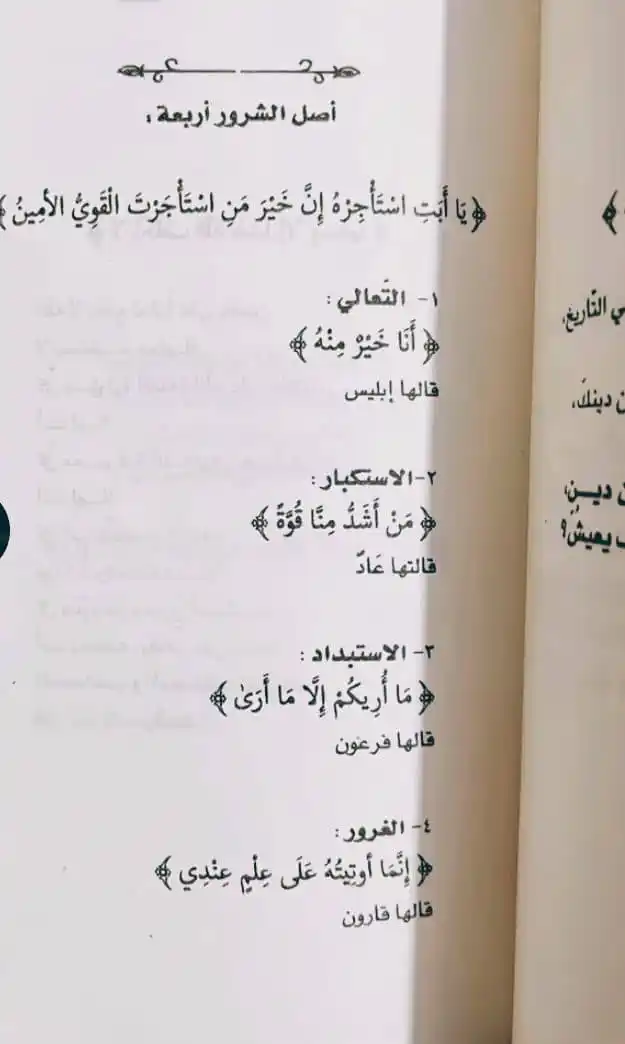 أصل الشرور أربعة :
﴿ يَا أَبَتِ اسْتَأْجِرْهُ إِنَّ خَيْرَ مَنِ اسْتَأْجَرْتَ الْقَوِيُّ الأمِينُ ﴾
١- التّعالي :
﴿ أَنَا خَيْرٌ مِنْهُ ﴾
قالها إبليس
٢-الاستكبار :
﴿ مَنْ أَشَدُّ مِنَّا قُوَّةً ﴾
قالتها عَادّ
٣- الاستبداد :
﴿ مَا أُرِيكُمْ إِلَّا مَا أَرَىٰ ﴾
قالها فرعون
٤- الغرور :
﴿ إِنَّمَا أوتِيتُهُ عَلَى عِلْمٍ عِنْدِي ﴾
قالها قارون
﴾
التّاريخ،
دينكَ،
ديــنٍ،
يعيشُ؟